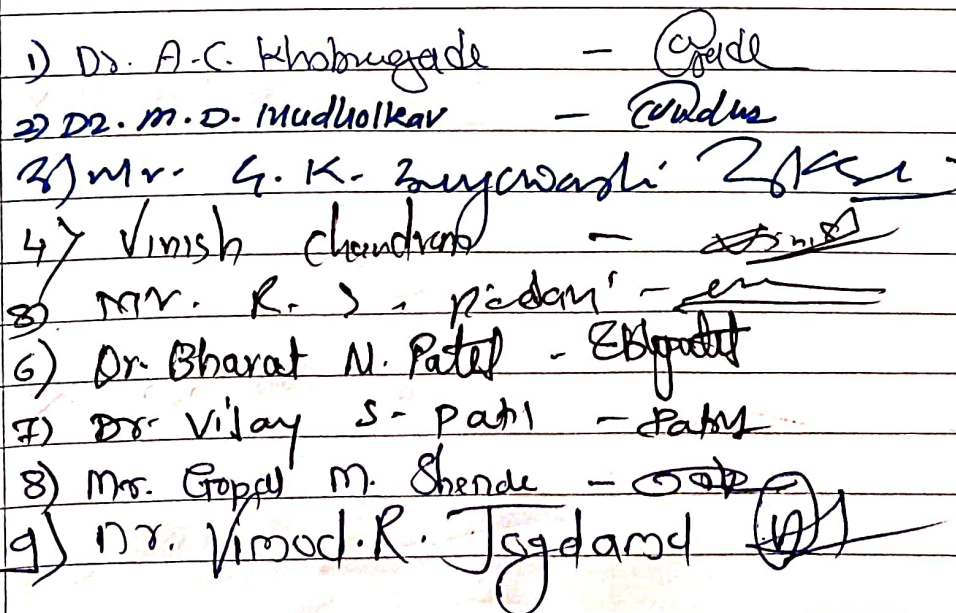 1) Dr. A.C. Khobragade -
2) Dr. M.D. Mudholkar -
3) Mr. G.K. Suryawanshi
4) Vinish Chandran -
Mr. R.S. -
6) Dr. Bharat N. Patel - EBNpatel
7) Dr. Vijay S. Patil - Patil
8) Mr. Gopal M. Shende -
9) Dr. Vinod.R. Jogdand